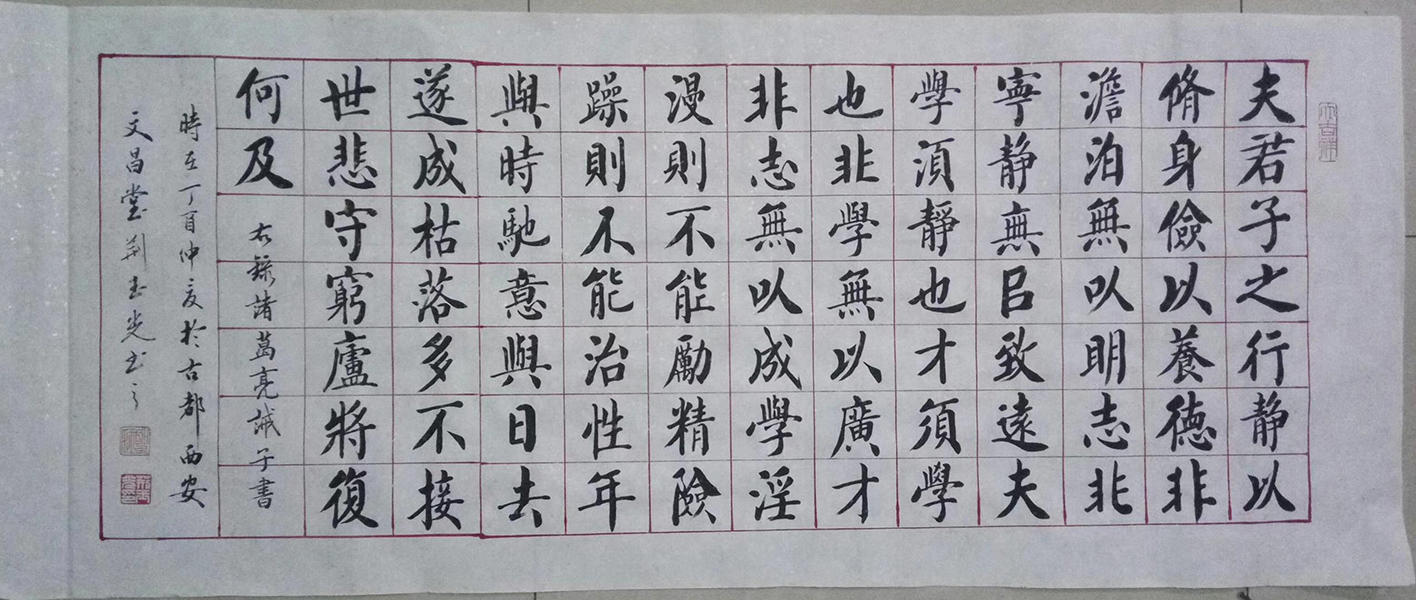 大吉祥
夫君子之行静以
脩身儉以養德非
澹泊無以明志非
寧静無㠯致遠夫
學須靜也才須學
也非學無以廣才
非志無以成學淫
漫則不能勵精險
躁則不能治性年
與時馳意與日去
遂成枯落多不接
世悲守窮廬將復
何及
右録諸葛亮誡子書
時在丁酉仲夏於古都西安
文昌堂荆玉光书之